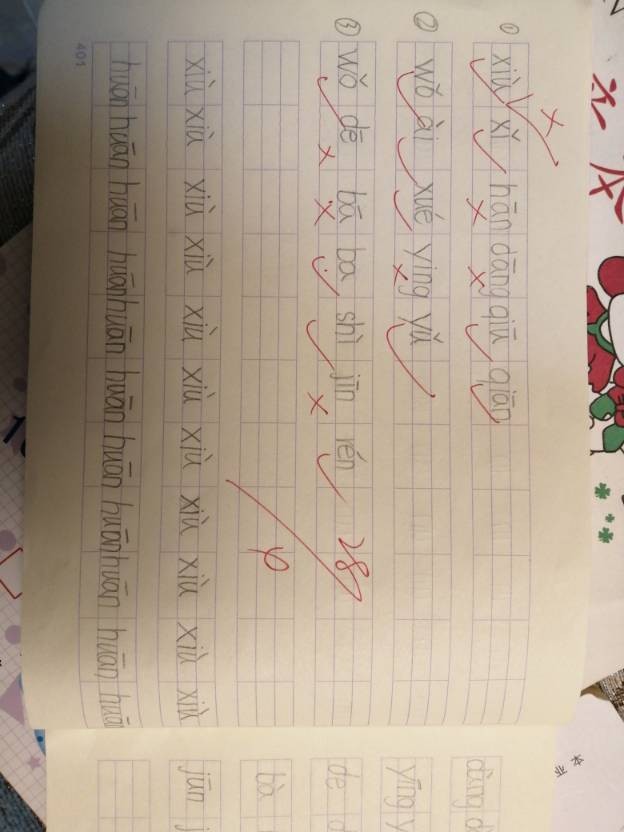 ① xiù xǐ hān dāng qiū qiān
② wǒ ài xué yīng yǔ
③ wǒ dē bā ba shì jīn rén
xiù xiù xiù xiù xiù xiù xiù xiù xiù xiù xiù
huān huān huān huānhuān huān huān huānhuān huān huān
401
dàng d
yīng y
de d
bà
jūn j